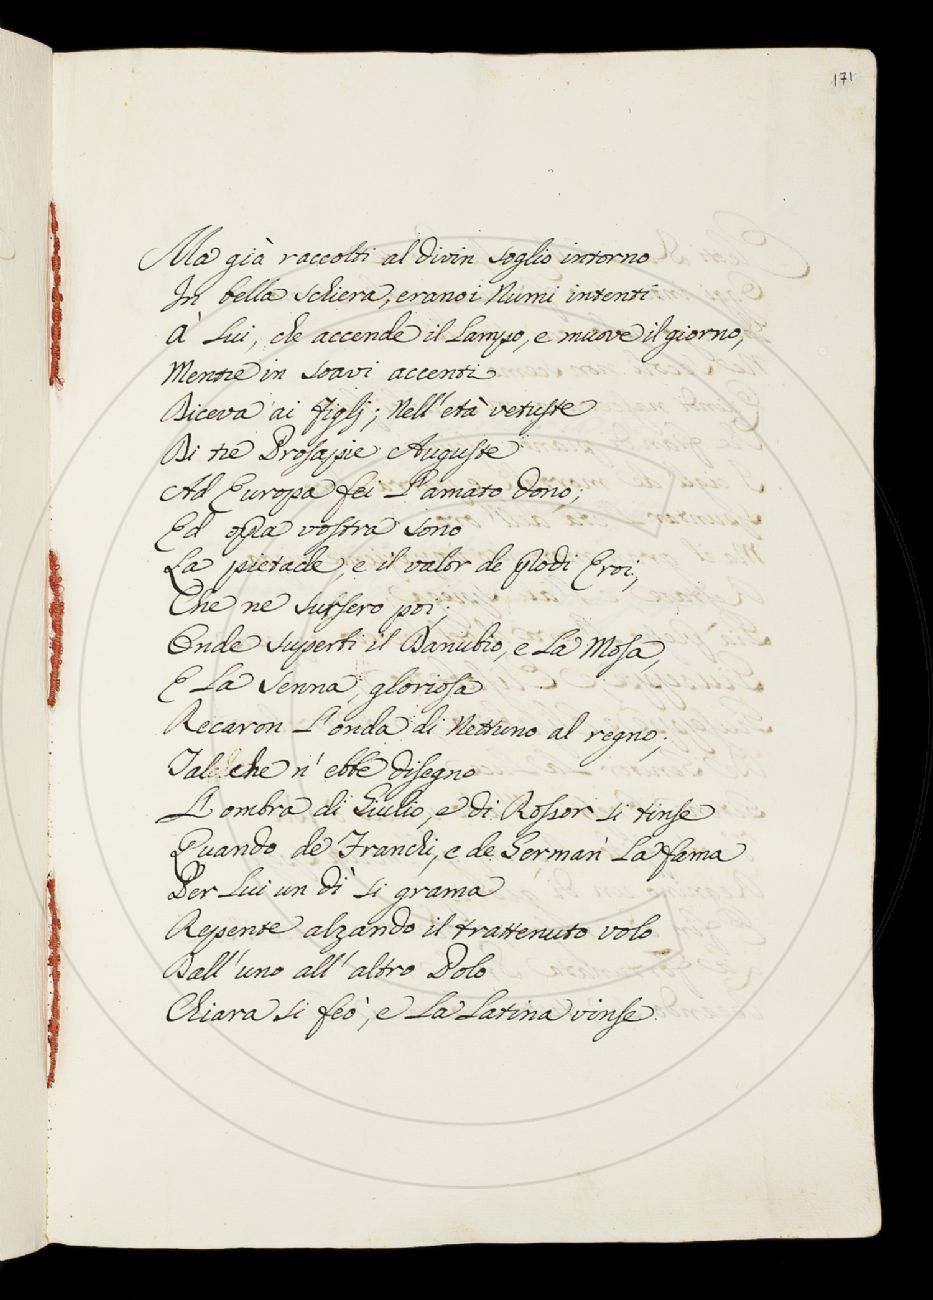 171
Ma già raccolti al divin soglio intorno
In bella schiera, erano i Numi intenti
À Lui, che accende il Lampo, e muove il giorno,
Mentre in soavi accenti
Diceva ai figlj; Nell'età vetuste
Di tre Prosapie Auguste
Ad Europa fei L'amato dono;
Ed opra vostra sono
La pietade, e il valor de prodi Eroi,
Che ne sussero poi;
Onde superbi il Danubio, e La Mosa,
E La Senna, gloriosa
Recaron L'onda di Nettuno al regno;
Tal che n'ebbe disegno
L'ombra di Giulio, e di Rossor si tinse
Quando de Franchi, e de German' La fama
Per Lui un dì si grama
Repente alzando il trattenuto volo
Dall'uno all'altro Polo
Chiara si feò, e La Latina vinse.